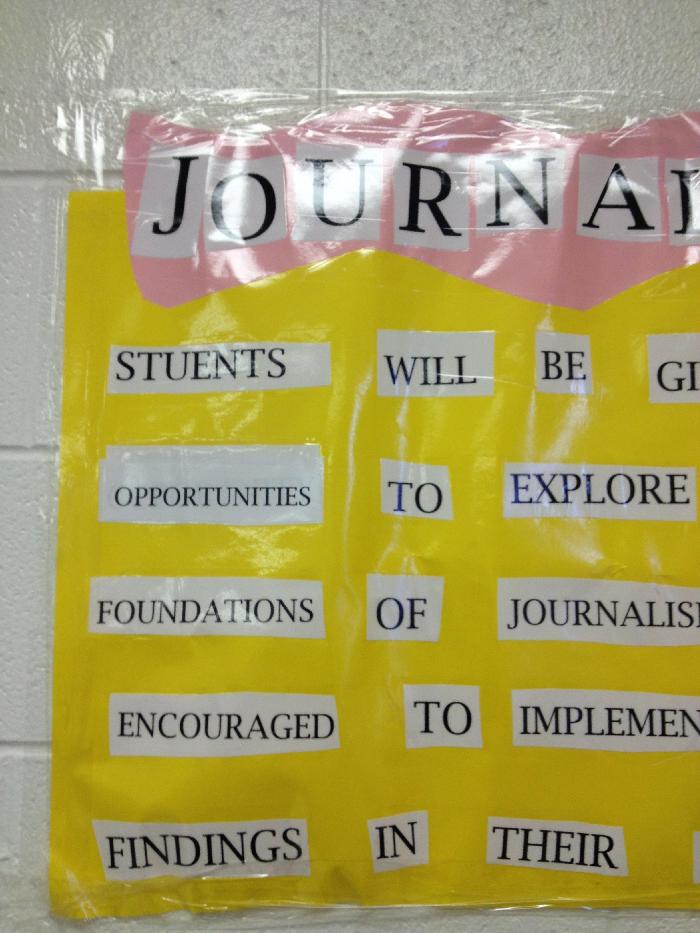 JOURNA
STUENTS WILL BE GI
OPPORTUNITIES TO EXPLORE
FOUNDATIONS OF JOURNALIS
ENCOURAGED TO IMPLEMEN
FINDINGS IN THEIR